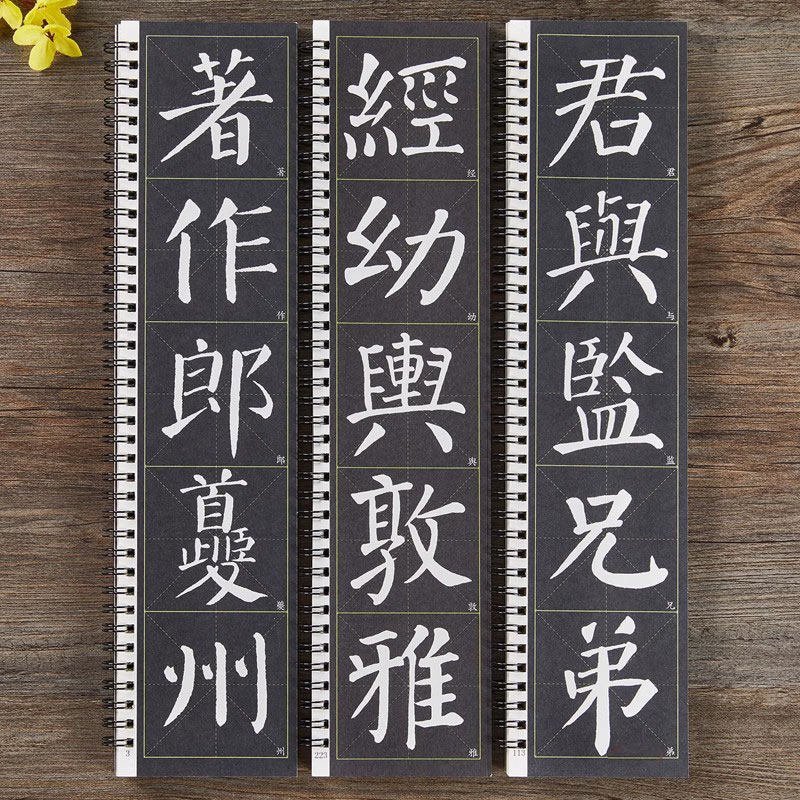 著作郎夔州
著
作
郎
夔
州
3
經幼輿敦雅
经
幼
敦
雅
223
君與監兄弟
君
与
監
兄
弟
113